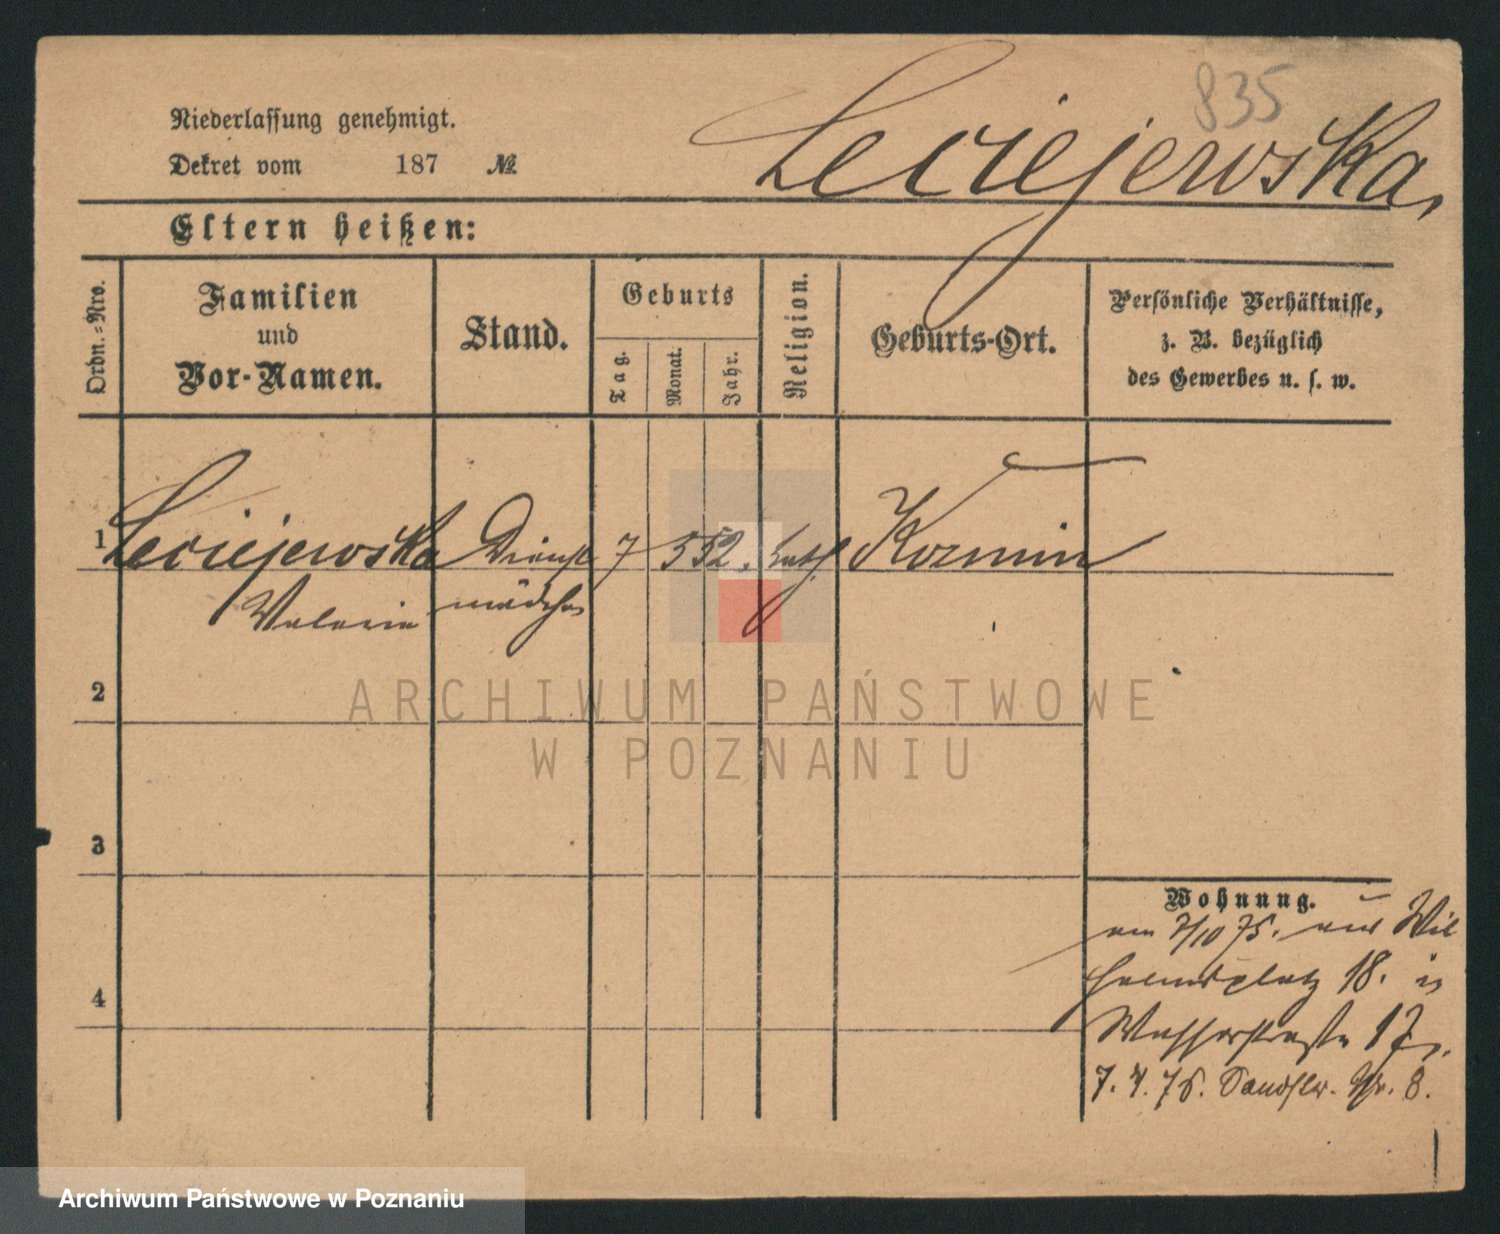 835
Leciejewska,
Niederlassung genehmigt.
Dekret vom 187 №
Eltern heißen:
Ordn.=Nro.
Familien
und
Vor-Namen.
Stand.
Geburts
Tag.
Monat.
Jahr.
Religion.
Geburts-Ort.
Persönliche Verhältnisse,
z. B. bezüglich
des Gewerbes u. s. w.
1 Leciejewska Dienst 7 5 52. kath. Kozmin
Valerie mädchen
2
3
4
Wohnung.
am 7/10 75. aus Wil
helmsplatz 18. in
Wasserstraße 17.
7. 4. 76. Sandstr. Nr. 8.
ARCHIWUM PAŃSTWOWE
W POZNANIU
Archiwum Państwowe w Poznaniu